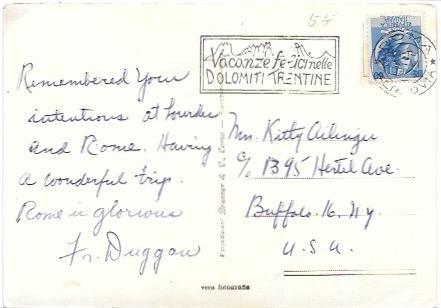 57
Vacanze felici nelle
DOLOMITI TRENTINE
ROMA
60
FERROVIA
Remembered Your
intentions at Lourdes
and Rome. Having
a wonderful trip.
Rome is glorious
Fr. Duggan
Mrs. Kitty
c/o 1395 Hertel Ave.
Buffalo. 16, N.y.
U.S.A.
vera fotografia